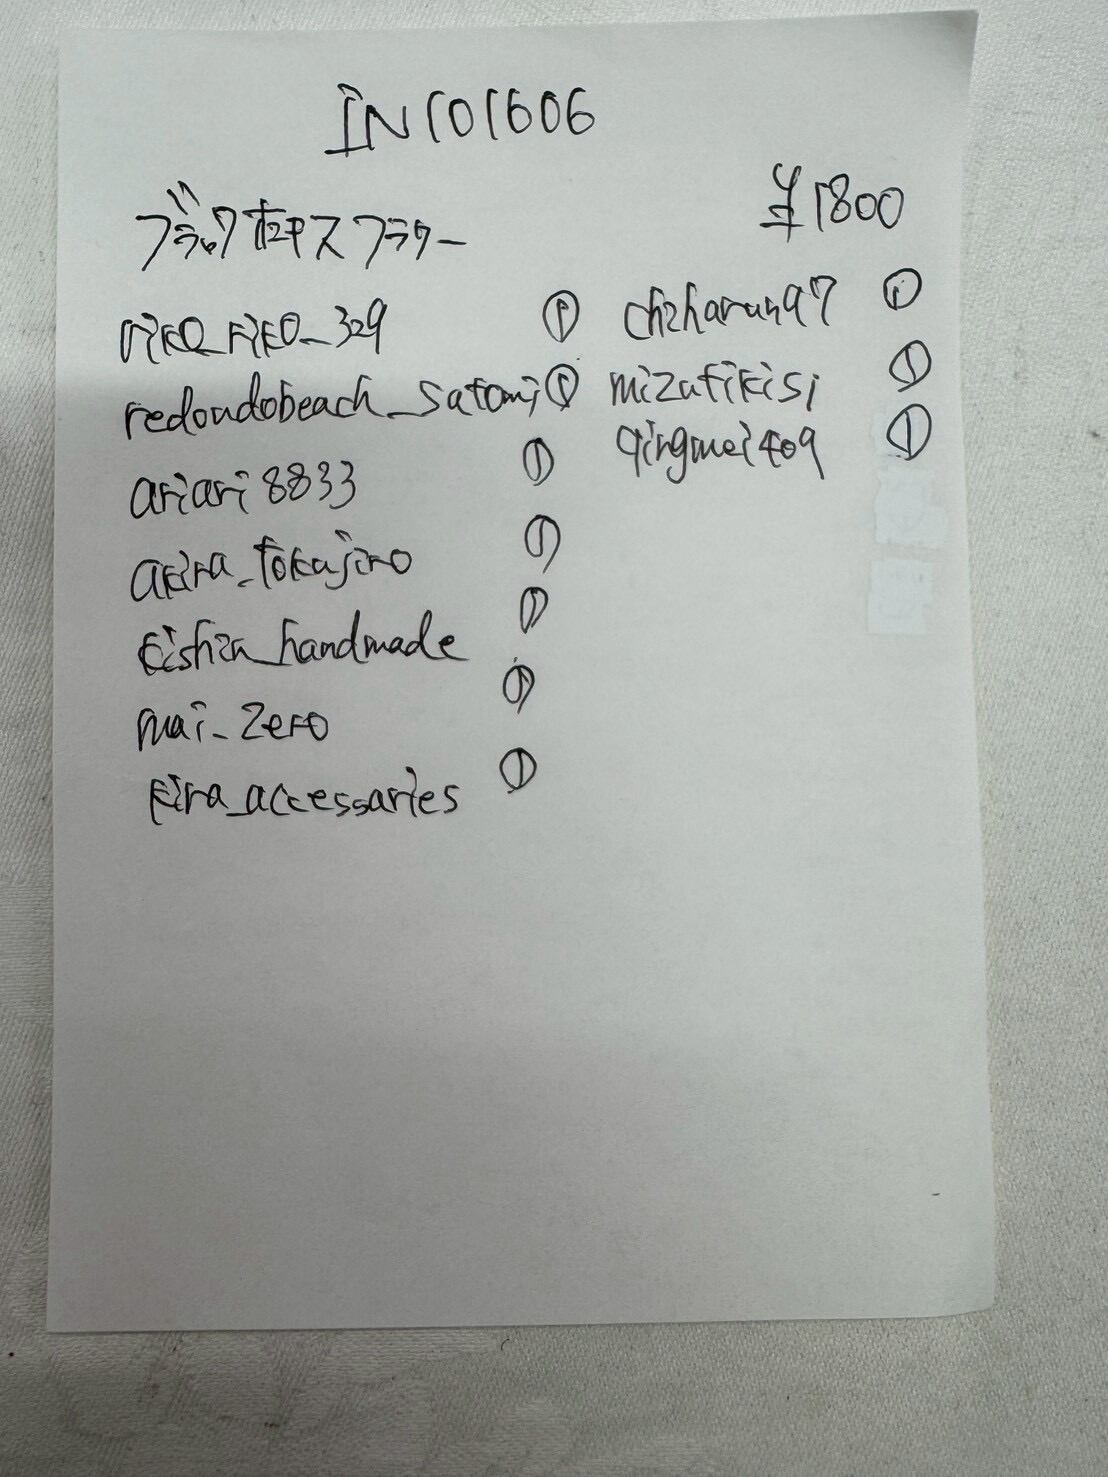 IN101606
¥1800
ブラックオキスフラワー
riko_riko_329 ①
redondobeach_satomi ①
ariari8833 ①
akira_tokajiro ①
kishin_handmade ①
mai_zero ①
kira_accessaries ①
chiharun97 ①
mizutikisi ①
qingmei409 ①